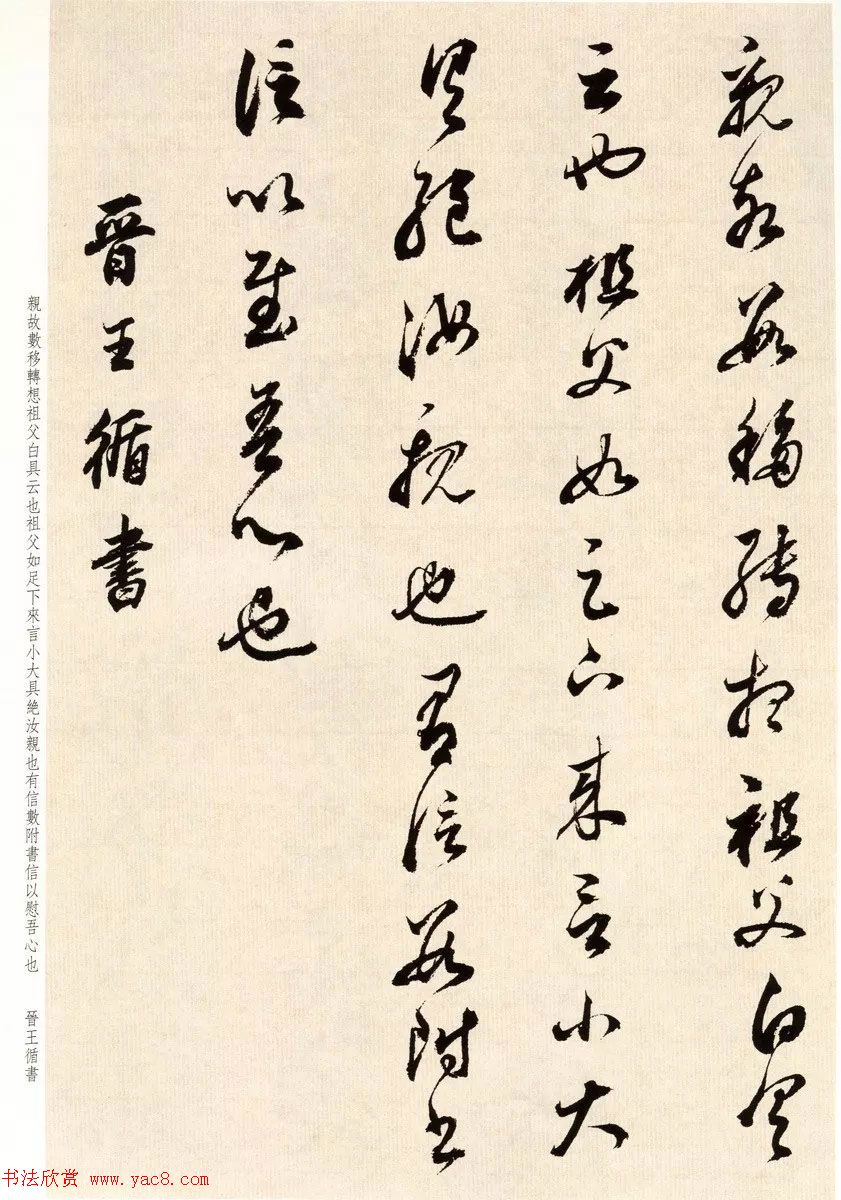 親故數移轉想祖父白具
云也祖父如足下來言小大
具絶汝親也有信數附書
信以慰吾心也
晉王循書
親故數移轉想祖父白具云也祖父如足下來言小大具絶汝親也有信數附書信以慰吾心也 晉王循書
书法欣赏 www.yac8.com